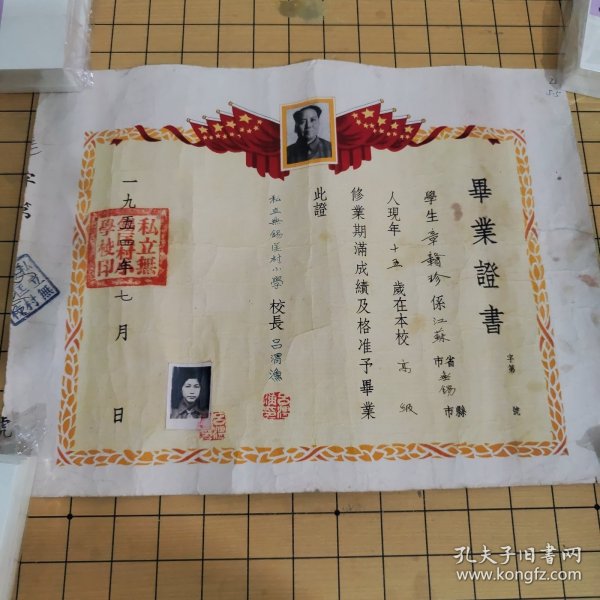 畢業證書
字第　號
學生章韻珍係江蘇省市無錫縣市
人現年十五歲在本校高級
修業期滿成績及格准予畢業
此證
私立無錫匡村小學 校長 呂渭漁
一九五四年七月　日
私立無
學校印
孔夫子旧书网
www.kongfz.com